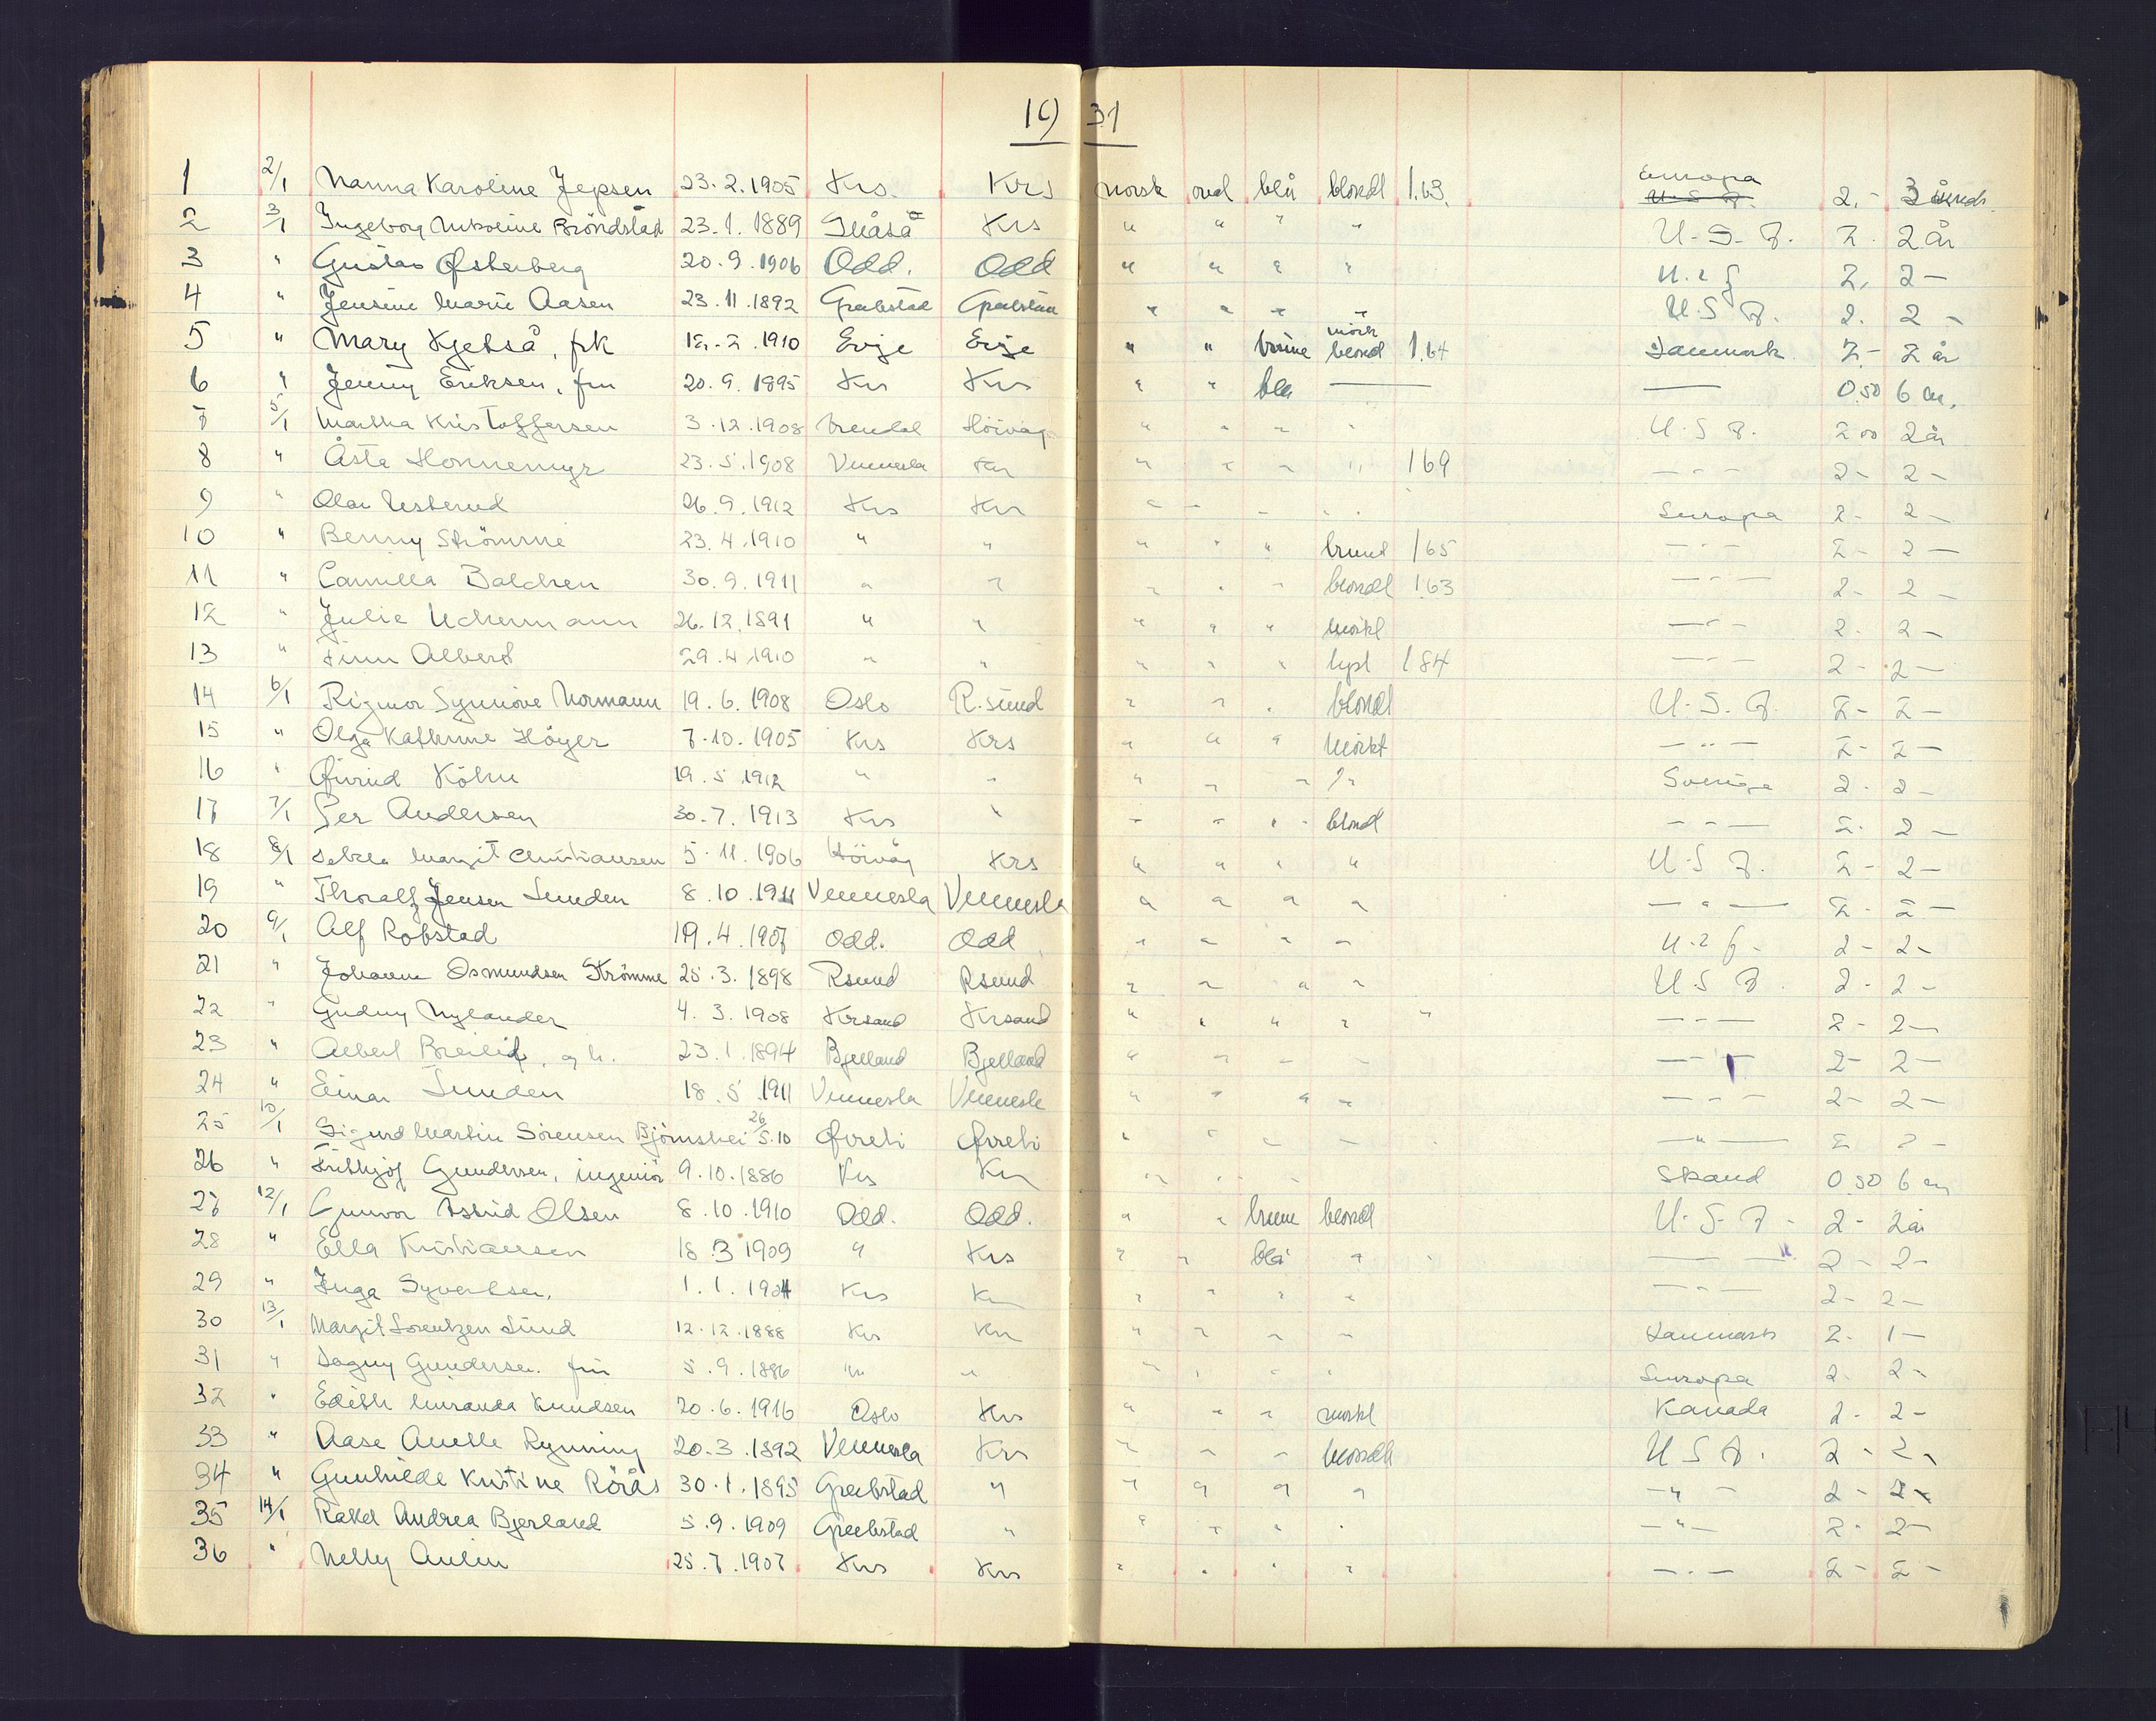 19 31
1 2/1 Nanna Karoline Jepsen 23.2.1905 Krs. Krs norsk oval blå blondt 1.63. Europa U.S.A. 2.-
2 3/1 Ingeborg Nikoline Bröndstad 23.1.1889 Krs " " " " U.S.A. 2. 2 år
3 " Gustav Østerberg 20.9.1906 Odd. Odd " " " " 2. 2 —
4 " Jensine Marie Aasen 23.11.1892 Greebstad " " " " U.S.A. 2. 2 -
5 " Mary Kjetså, frk 1910 Evje Evje " " brune mörk blond 1.64 Danmark 2- 2 år
6 " Jenny Eriksen, fru 20.9.1895 Krs Krs " " blå — — 0.50 6 m.
7 5/1 Martha Kristoffersen 3.12.1908 Arendal Höivåg " " " " U.S.A. 2.00 2 år
8 " Åsta Honnemyr 23.5.1908 Vennesla Krs " " " " 1 69 — " — 2- 2-
9 " Olav 26.9.1912 Krs Krs " " " " Europa 2- 2-
10 " Benny Strömme 23.4.1910 " " " " " brunt 1 65 — " — 2- 2-
11 " Camilla Balchen 30.9.1911 " " " " " blondt 1.63 — " — 2- 2-
12 " Julie Uchermann 26.12.1891 " " " " " mörkt — " — 2- 2-
13 " Finn Albert 29.4.1910 " " " " " lyst 1 84 — " — 2- 2-
14 6/1 Rigmor Synnöve Normann 19.6.1908 Oslo R.sund " " " blondt U.S.A. 2- 2-
15 " Olga Kathrine Höyer 7.10.1905 Krs Krs " " " mörkt — " — 2- 2-
16 " Øivind Köhn 19.5.1912 " " " " " " Sverige 2- 2-
17 7/1 Per Andersen 30.7.1913 Krs " " " " blondt — " — 2- 2-
18 8/1 Margit Christiansen 5.11.1906 Höivåg Krs " " " " U.S.A. 2- 2-
19 " Thoralf Jensen Lunden 8.10.1911 Vennesla Vennesla " " " " — " — 2- 2-
20 9/1 Alf Robstad 19.4.1907 Odd. Odd " " " " 2- 2-
21 " Johanne Osmundsen Strömme 25.3.1898 Rsund Rsund " " " " U.S.A. 2- 2-
22 " Gudny Nylander 4.3.1908 Krsand Krsand " " " " " — " — 2- 2-
23 " Albert Breilid, g.h. 23.1.1894 Bjelland Bjelland " " " " — " — 2- 2-
24 " Einar Lunden 18.5.1911 Vennesla Vennesla " " " " — " — 2- 2-
25 10/1 Sigurd Martin Sörensen 26/5.10 " " " " — " — 2 2-
26 " Frithjof Gundersen, ingeniör 9.10.1886 Krs Krs " " " Skand 0.50 6 m
27 12/1 Gunvor Astrid Olsen 8.10.1910 Odd. Odd. " " brune blondt U.S.A. 2- 2 år
28 " Ella Kristiansen 18.3.1909 " Krs " " blå " — " 2- 2-
29 " Inga Syvertsen. 1.1.1904 Krs Krs " " " " — " — 2- 2-
30 13/1 Margit Lorentzen Lund 12.12.1888 Krs Krs " " " " Danmark 2. 1-
31 " Dagny Gundersen. fru 5.9.1886 " " " " " " Europa 2. 2-
32 " Edith Miranda Knudsen 20.6.1916 Oslo Krs " " " mörkt Kanada 2- 2-
33 " Aase Anette Rynning 20.3.1892 Vennesla Krs " " " blondt U.S.A. 2- 2-
34 " Gunhilde Kristine Rörås 30.1.1895 Greebstad " " " " " — " — 2- 2-
35 14/1 Rakel Andrea Bjerland 5.9.1909 Greebstad " " " " " — " — 2- 2-
36 " Nelly Aulin 25.7.1907 Krs Krs " " " " — " — 2- 2-